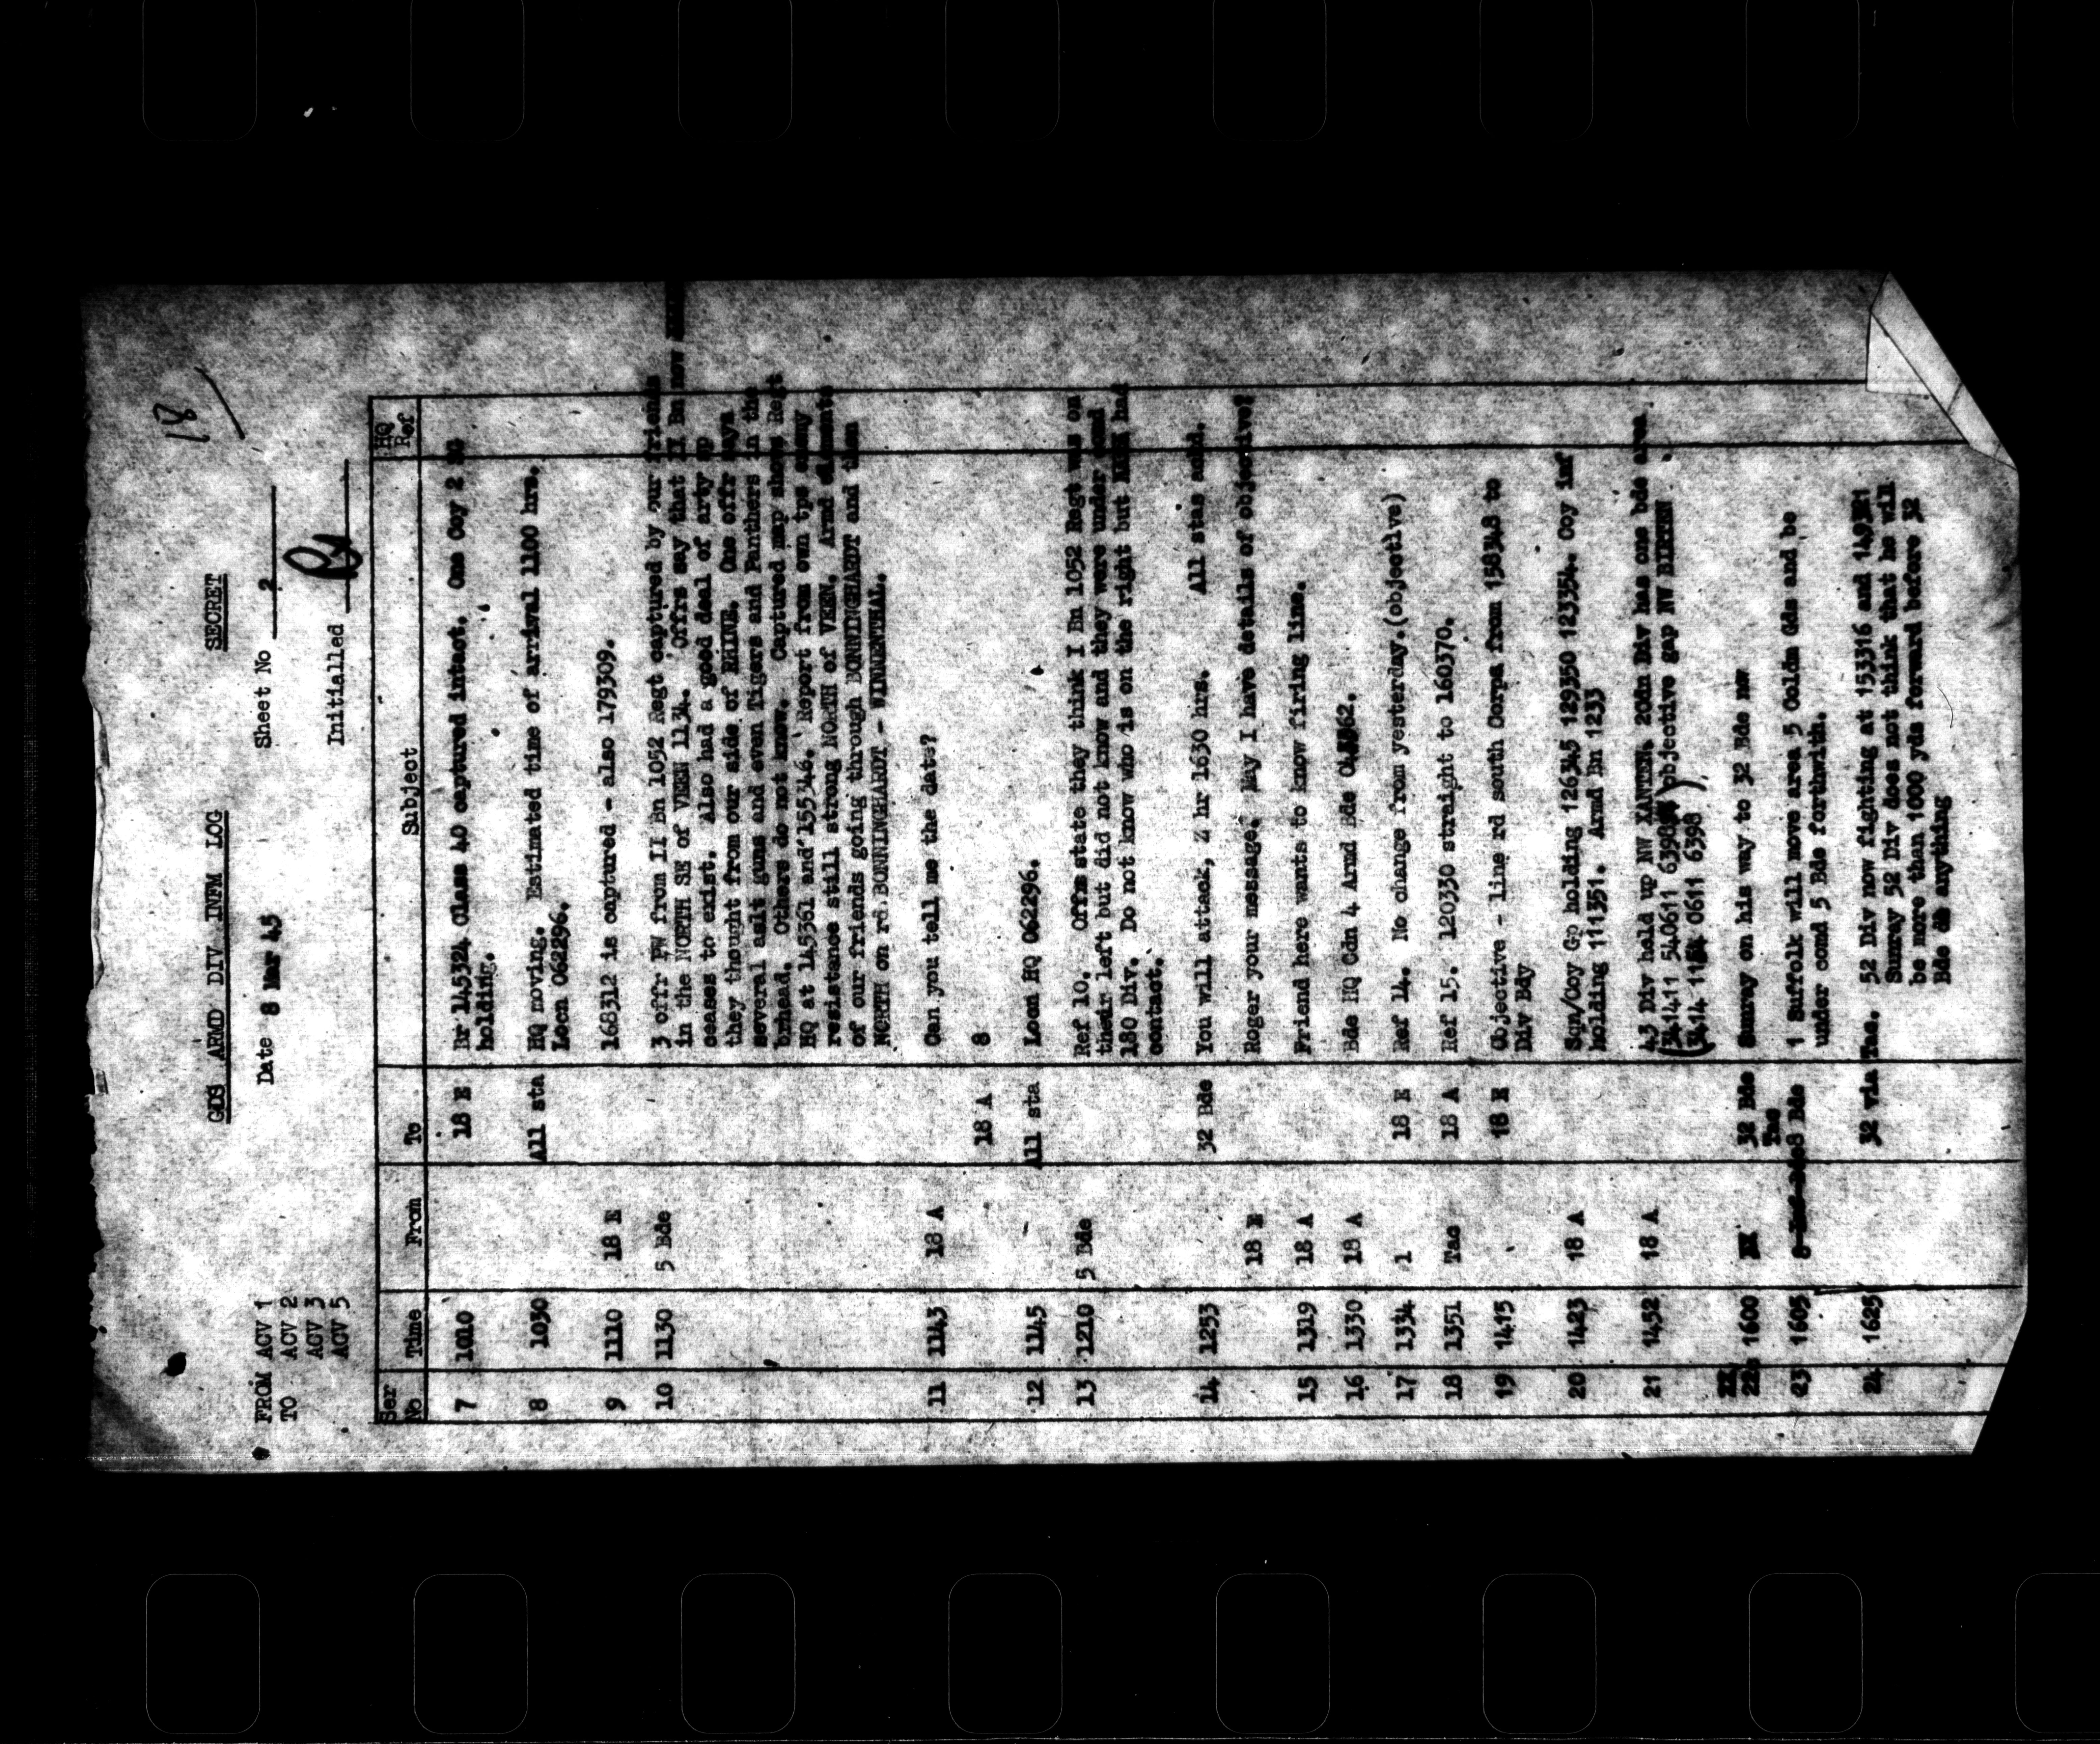 18
GDS ARMD DIV INFM LOG SECRET
FROM ACV 1 Date 8 Mar 45 Sheet No 2
TO ACV 2
ACV 3
ACV 5 Initialled
Ser No Time From To Subject HQ Ref
7 1010 18 E Br 145324 Class 40 captured intact. One Coy 2
holding.
8 1030 All sta HQ moving. Estimated time of arrival 1100 hrs.
Locn 062296.
9 1110 18 E 168312 is captured - also 179309.
10 1130 5 Bde 3 offr PW from II Bn 1052 Regt captured by our friends
in the NORTH SE of VEEN 1134. Offrs say that II Bn now
ceases to exist. Also had a good deal of arty
they thought from our side of RHINE. One offr says
several aslt guns and even Tigers and Panthers in the
bridgehead. Others do not know. Captured map shows Regt
HQ at 145361 and 155346. Report from own tps enemy
resistance still strong NORTH of VEEN. Armd elements
of our friends going through BONNINGHARDT and then
NORTH on rd BONNINGHARDT - WINNENTHAL.
11 1143 18 A Can you tell me the date?
18 A 8
12 1145 All sta Locn HQ 062296.
13 1210 5 Bde Ref 10. Offrs state they think I Bn 1052 Regt was on
their left but did not know and they were under comd
180 Div. Do not know who is on the right but had
contact.
14 1253 32 Bde You will attack, 2 hr 1630 hrs. All stas ackd.
18 E Roger your message. May I have details of objective?
15 1319 18 A Friend here wants to know firing line.
16 1330 18 A Bde HQ Cdn 4 Armd Bde
17 1334 1 18 E Ref 14. No change from yesterday.(objective)
18 1351 Tac 18 A Ref 15. 120330 straight to 160370.
19 1415 18 E Objective - line rd south Corps from 158348 to
Div Bdy
20 1423 18 A Sqn/Coy Gp holding 126345 129350 123354. Coy inf
holding 111351. Armd Bn 1233
21 1452 18 A 43 Div held up NW XANTEN. 2Cdn Div has one bde area
(141411 540611 6398 objective gap NW BIRTEN
(1414 0611 6398 ).
22 1600 32 Bde Tac Sunray on his way to 32 Bde now
23 1605 8 Bde 1 Suffolk will move area 5 Coldm Gds and be
under comd 5 Bde forthwith.
24 1625 32 via Tac. 52 Div now fighting at 153316 and
Sunray 52 Div does not think that he will
be more than 1000 yds forward before 32
Bde do anything